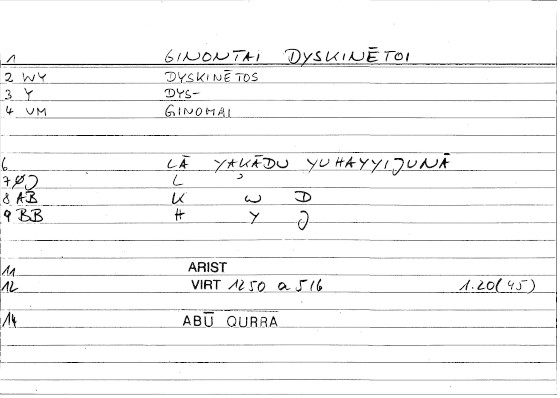 1 GINONTAI DYSKINĒTOI
2 WY DYSKINĒTOS
3 Y DYS-
4 VM GINOMAI
6 LĀ YAKĀDU YUHAYYIJUNĀ
7 ØJ L ʾ
8 AB K W D
9 BB H Y J
11 ARIST
12 VIRT 1250 a 5/6 1.20(45)
14 ABŪ QURRA